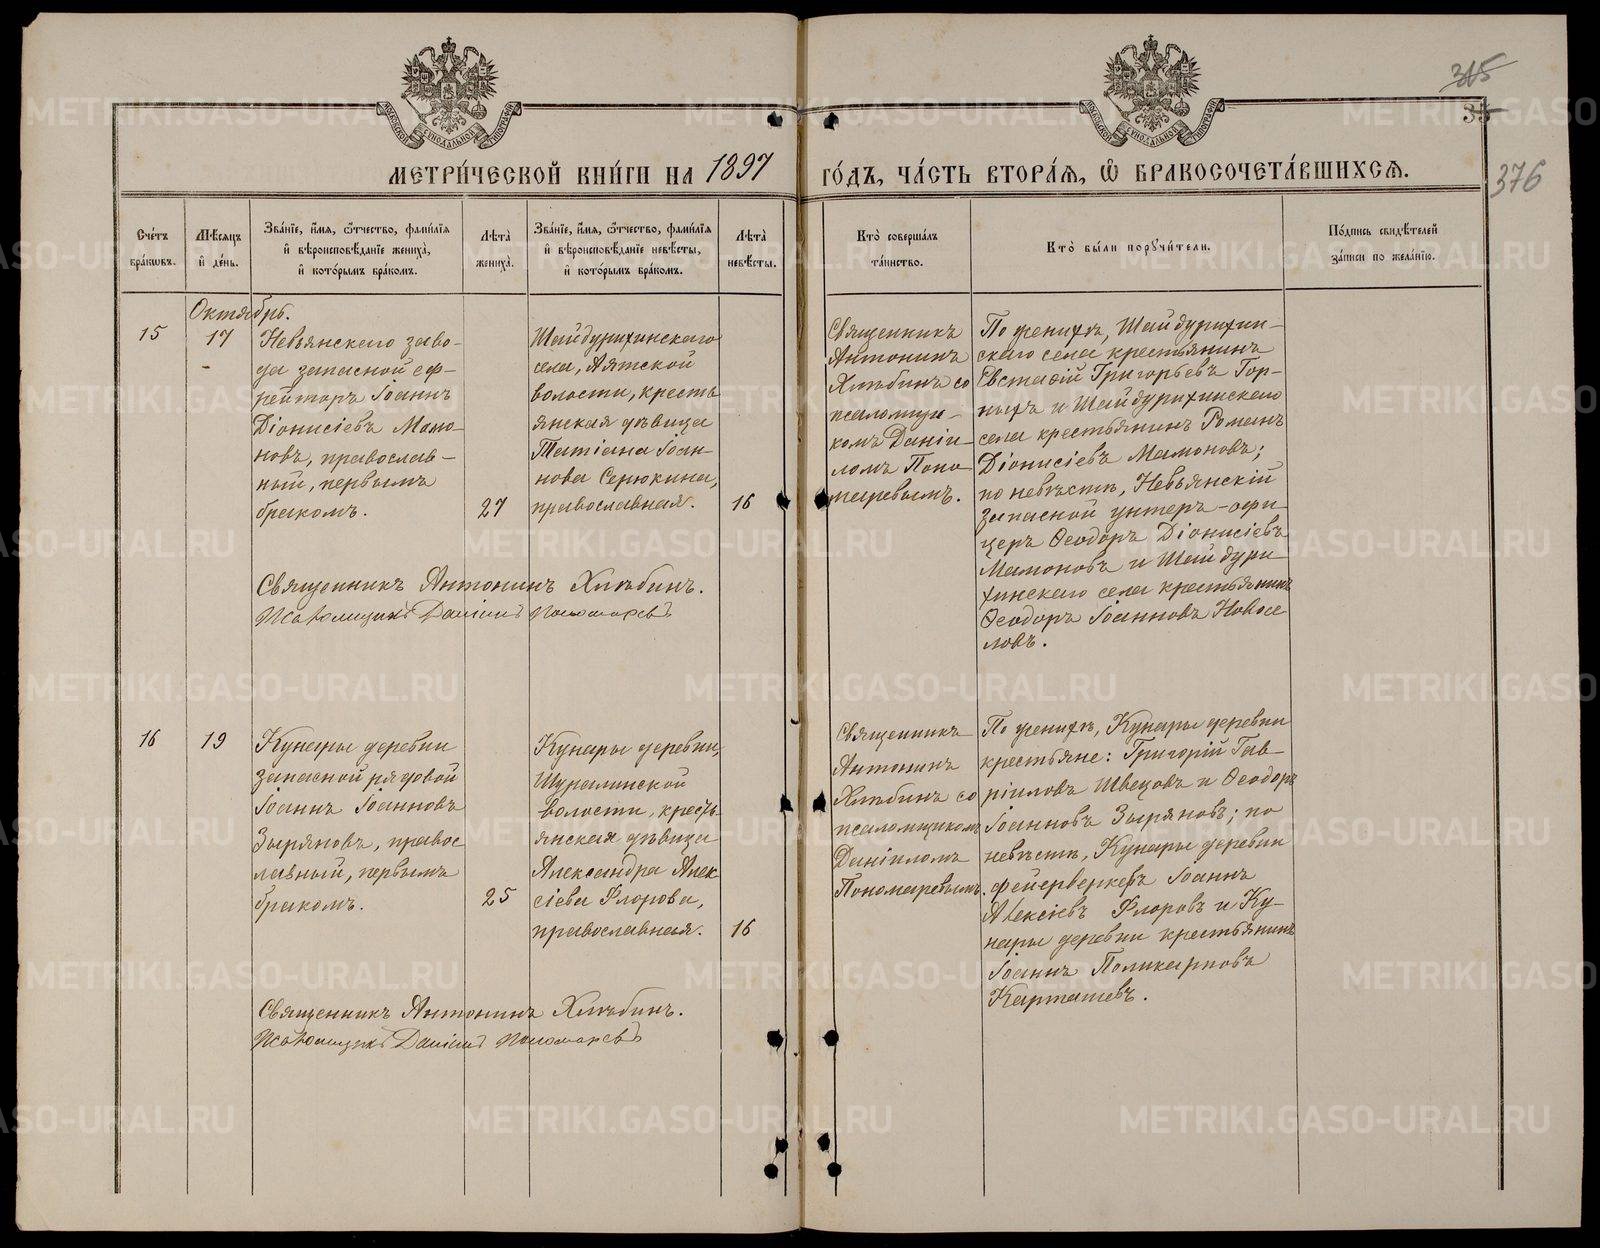 315
35
376
МЕТРИ́ЧЕСКОЙ КНИ́ГИ НА 1897 ГО́ДЪ, ЧА́СТЬ ВТОРА́Ѧ, Ѽ БРАКОСОЧЕТА́ВШИХСѦ.
Сче́тъ бра́ковъ.
Мѣ́сяцъ и де́нь.
Зва́нїе, и́мя, ѻ́тчество, фами́лїя и вѣроисповѣ́данїе жениха̀, и кото́рымъ бра́комъ.
Лѣ́та жениха̀.
Зва́нїе, и́мя, ѻ́тчество, фами́лїя и вѣроисповѣ́данїе невѣ́сты, и кото́рымъ бра́комъ.
Лѣ́та невѣ́сты.
Кто̀ соверша́лъ та́инство.
Кто̀ бы́ли порꙋчи́тели.
По́дпись свидѣ́телей за́писи по жела́нїю.
Октябрь.
15
17
Невьянскаго заво-
да запасной еф-
рейторъ Іоаннъ
Діонисіевъ Мамо-
новъ, православ-
ный, первымъ
бракомъ.
27
Шайдурихинскаго
села, Аятской
волости, кресть
янская дѣвица
Татіана Іоан-
нова Серюкина,
православная.
16
Священникъ
Антонинъ
Хлѣбинъ со
псаломщи-
комъ Даніи-
ломъ Поно
маревымъ.
По женихѣ, Шайдурихин-
скаго села крестьянинъ
Евстафій Григорьевъ Гор-
ныхъ и Шайдурихинскаго
села крестьянинъ Романъ
Діонисіевъ Мамоновъ;
по невѣстѣ, Невьянскій
запасной унтеръ-офи-
церъ Ѳеодоръ Діонисіевъ
Мамоновъ и Шайдури-
хинскаго села крестьянинъ
Ѳеодоръ Іоанновъ Новосе
ловъ.
Священникъ Антонинъ Хлѣбинъ.
Псаломщикъ Даніилъ Пономаревъ
16
19
Кунары деревни
запасной рядовой
Іоаннъ Іоанновъ
Зыряновъ, правос
лавный, первымъ
бракомъ.
25
Кунары деревни,
Шуралинской
волости, кресть-
янская дѣвица
Александра Алек
сіева Флорова,
православная.
16
Священникъ
Антонинъ
Хлѣбинъ со
псаломщикомъ
Даніиломъ
Пономаревымъ.
По женихѣ, Кунары деревни
крестьяне: Григорій Гав-
ріиловъ Швецовъ и Ѳеодоръ
Іоанновъ Зыряновъ; по
невѣстѣ, Кунары деревни
фейерверкеръ Іоаннъ
Алексіевъ Флоровъ и Ку-
нары деревни крестьянинъ
Іоаннъ Поликарповъ
Карташевъ.
Священникъ Антонинъ Хлѣбинъ.
Псаломщикъ Даніилъ Пономаревъ
METRIKI.GASO-URAL.RU